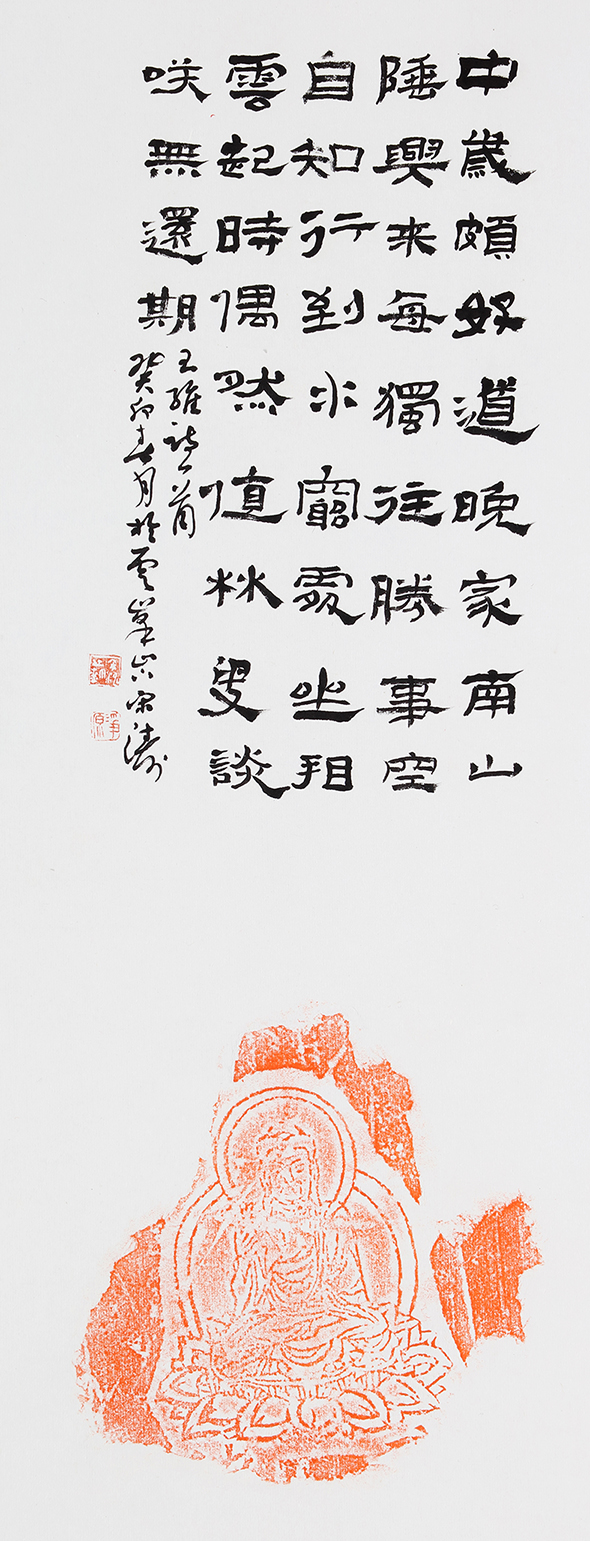 中歲頗好道晚家南山
陲興来每獨往勝事空
自知行到水窮處坐看
雲起時偶然值林叟談
咲無還期
王維詩一首
癸卯春月於雲峯山宋濤